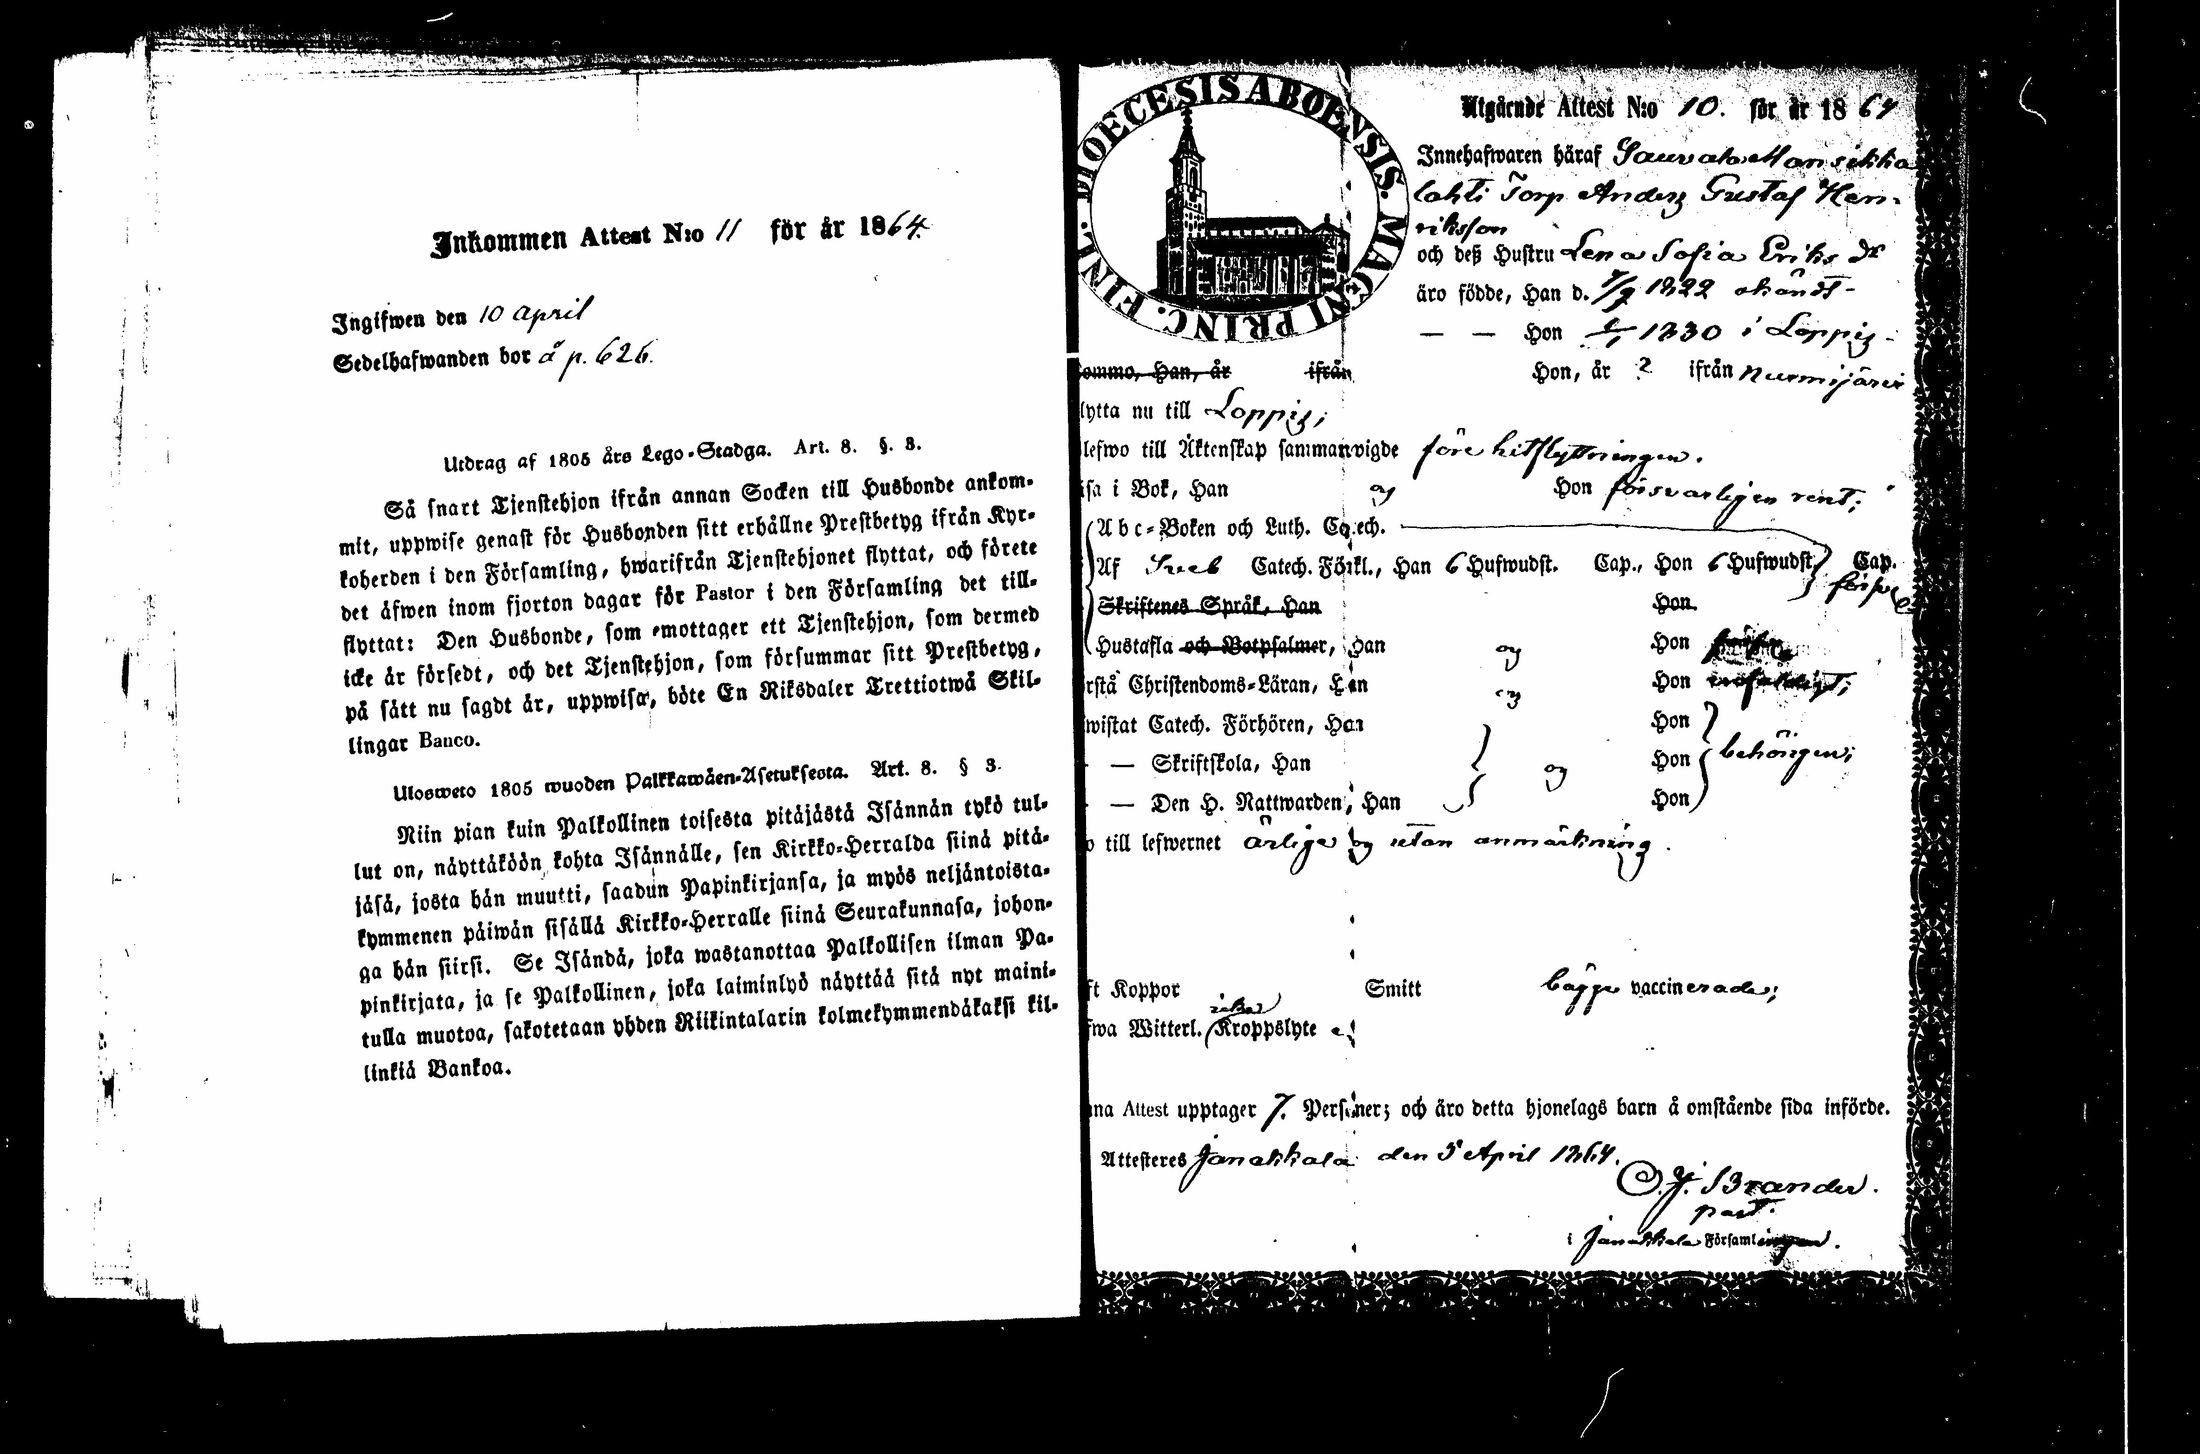 Inkommen Attest N:o 11 för år 1864.
Ingifwen den 10 april
Sedelhafwanden bor å p. 626.
Utdrag af 1805 års Lego-Stadga. Art. 8. §. 3.
Så snart Tjenstehjon ifrån annan Socken till Husbonde ankom-
mit, uppwise genast för Husbonden sitt erhållne Prestbetyg ifrån Kyr-
koherden i den Församling, hwarifrån Tjenstehjonet flyttat, och förete
det äfwen inom fjorton dagar för Pastor i den Församling det till-
flyttat: Den Husbonde, som emottager ett Tjenstehjon, som dermed
icke är försedt, och det Tjenstehjon, som försummar sitt Prestbetyg,
på sätt nu sagdt är, uppwisa, böte En Riksdaler Trettiotwå Skil-
lingar Banco.
Ulosweto 1805 wuoden Palkkawäen-Asetuksesta. Art. 8. § 3.
Niin pian kuin Palkollinen toisesta pitäjästä Isännän tykö tul-
lut on, näyttäköön kohta Isännälle, sen Kirkko-Herralda siinä pitä-
jäsä, josta hän muutti, saadun Papinkirjansa, ja myös neljäntoista-
kymmenen päiwän sisällä Kirkko-Herralle siinä Seurakunnasa, johon-
ga hän siirsi. Se Isändä, joka wastanottaa Palkollisen ilman Pa-
pinkirjata, ja se Palkollinen, joka laiminlyö näyttää sitä nyt maini-
tulla muotoa, sakotetaan yhden Riikintalarin kolmekymmendäkaksi kil-
linkiä Bankoa.
FINL. DIOECESIS ABOENSIS. MAGNI PRINC.
Utgående Attest N:o 10. för år 1864
Innehafwaren häraf Sauvala Mansikka
lahti Torp Anders Gustaf Hen-
riksson
och deß Hustru Lena Sofia Eriks dr
äro födde, Han d. 7/9 1822
— — Hon 1830 i Loppis
ommo, Han, år ifrån Hon, år ? ifrån Nurmijärvi
lytta nu till Loppis;
lefwo till Äktenskap sammanvigde före hitflyttningen.
sa i Bok, Han og Hon försvarligen rent;
Abc-Boken och Luth. Catech.
Af Sveb Catech. Förkl., Han 6 Hufwudst. Cap., Hon 6 Hufwudst. Cap.
Skriftenes Språk, Han Hon
Hustafla och Botpsalmer, Han og Hon
rstå Christendoms-Läran, Han og Hon
wistat Catech. Förhören, Han Hon
— Skriftskola, Han og Hon behörigen;
— Den H. Nattwarden, Han Hon
o till lefwernet ärlige og utan anmärkning.
ft Koppor Smitt bägge vaccinerade;
fwa Witterl. Kroppslyte
nna Attest upptager 7. Personer; och äro detta hjonelags barn å omstående sida införde.
Attesteres Janakkala den 5 April 1864.
C. J. Brander.
past.
i Janakkala Församlingen.